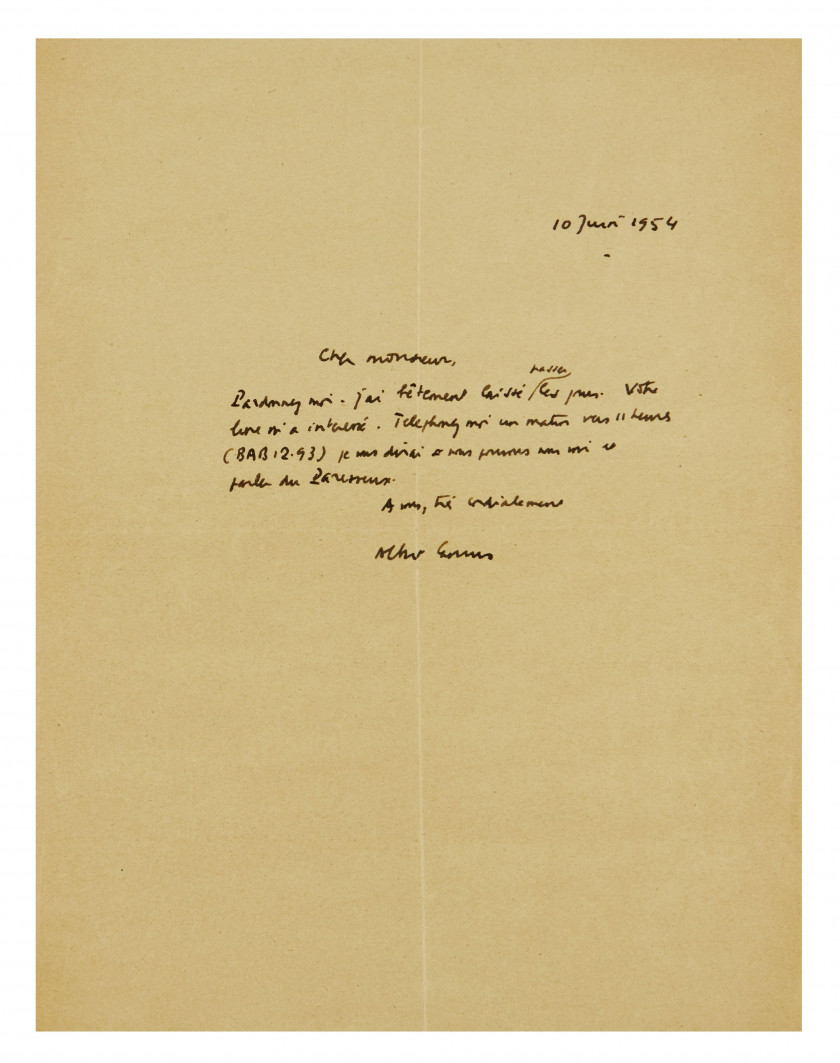 10 Juin 1954
-
Cher monsieur,
passer
Pardonnez moi. j'ai bêtement laissé les jours. Votre
livre m'a intéressé. Telephonez moi un matin vers 11 heures
(BAB 12.93) je vous dirai si nous pouvons nous voir et
parler du Paresseux.
A vous, très cordialement
Albert Camus